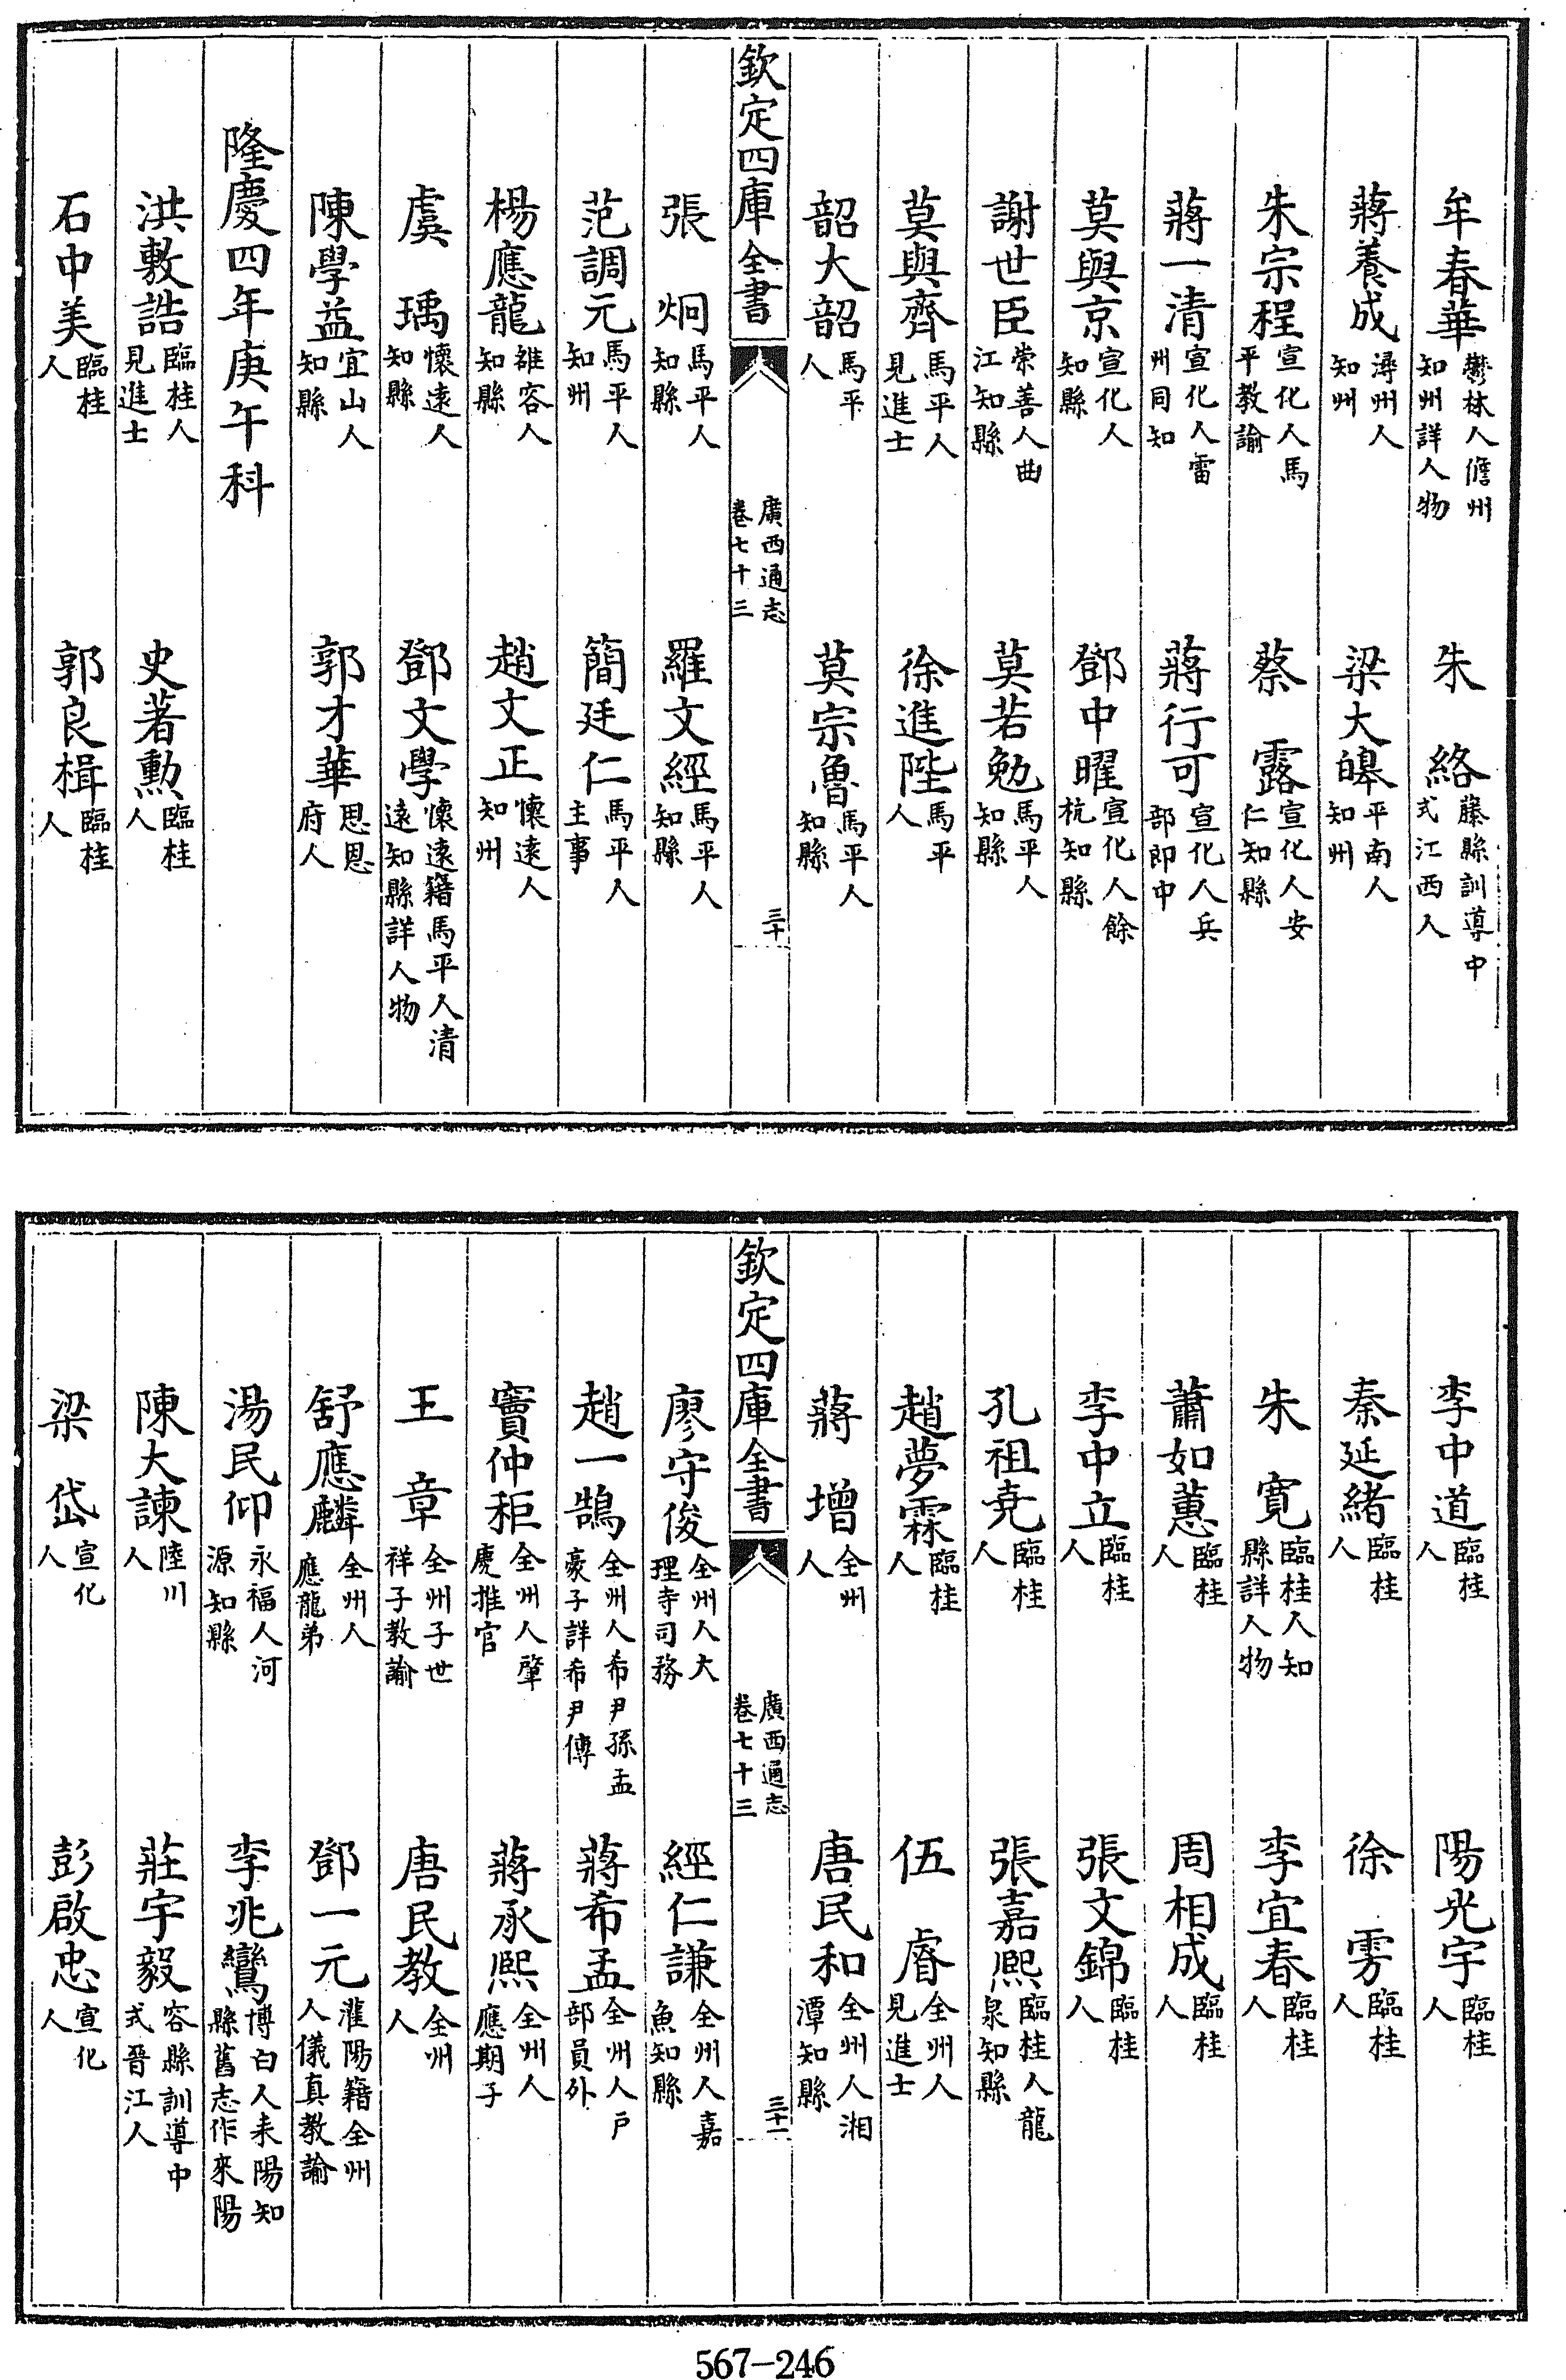 牟春華鬱林人儋州知州詳人物　朱絡藤縣訓導中式江西人
蔣養成潯州人知州　梁大皞平南人知州
朱宗程宣化人馬平教諭　蔡露宣化人安仁知縣
蔣一清宣化人雷州同知　蔣行可宣化人兵部郎中
莫與京宣化人知縣　鄧中曜宣化人餘杭知縣
謝世臣崇善人曲江知縣　莫若勉馬平人知縣
莫與齊馬平人見進士　徐進陛馬平人
韶大韶馬平人　莫宗魯馬平人知縣
欽定四庫全書　廣西通志卷七十三　三十
張炯馬平人知縣　羅文經馬平人知縣
范調元馬平人知州　簡廷仁馬平人主事
楊應龍雒容人知縣　趙文正懷遠人知州
虞瑀懷遠人知縣　鄧文學懷遠籍馬平人清遠知縣詳人物
陳學益宜山人知縣　郭才華思恩府人
隆慶四年庚午科
洪敷誥臨桂人見進士　史著勳臨桂人
石中美臨桂人　郭良楫臨桂人
李中道臨桂人　陽光宇臨桂人
秦延緒臨桂人　徐雱臨桂人
朱寬臨桂人知縣詳人物　李宜春臨桂人
蕭如蕙臨桂人　周相成臨桂人
李中立臨桂人　張文錦臨桂人
孔祖堯臨桂人　張嘉熙臨桂人龍泉知縣
趙夢霖臨桂人　伍睿全州人見進士
蔣增全州人　唐民和全州人湘潭知縣
欽定四庫全書　廣西通志卷七十三　三十一
廖守俊全州人大理寺司務　經仁謙全州人嘉魚知縣
趙一鵠全州人希尹孫孟豪子詳希尹傳　蔣希孟全州人戶部員外
竇仲秬全州人肇慶推官　蔣承熙全州人應期子
王章全州子世祥子教諭　唐民教全州人
舒應麟全州人應龍弟　鄧一元灌陽籍全州人儀真教諭
湯民仰永福人河源知縣　李兆鸞博白人耒陽知縣舊志作來陽
陳大諫陸川人　莊宇毅容縣訓導中式晉江人
梁岱宣化人　彭啟忠宣化人
567-246